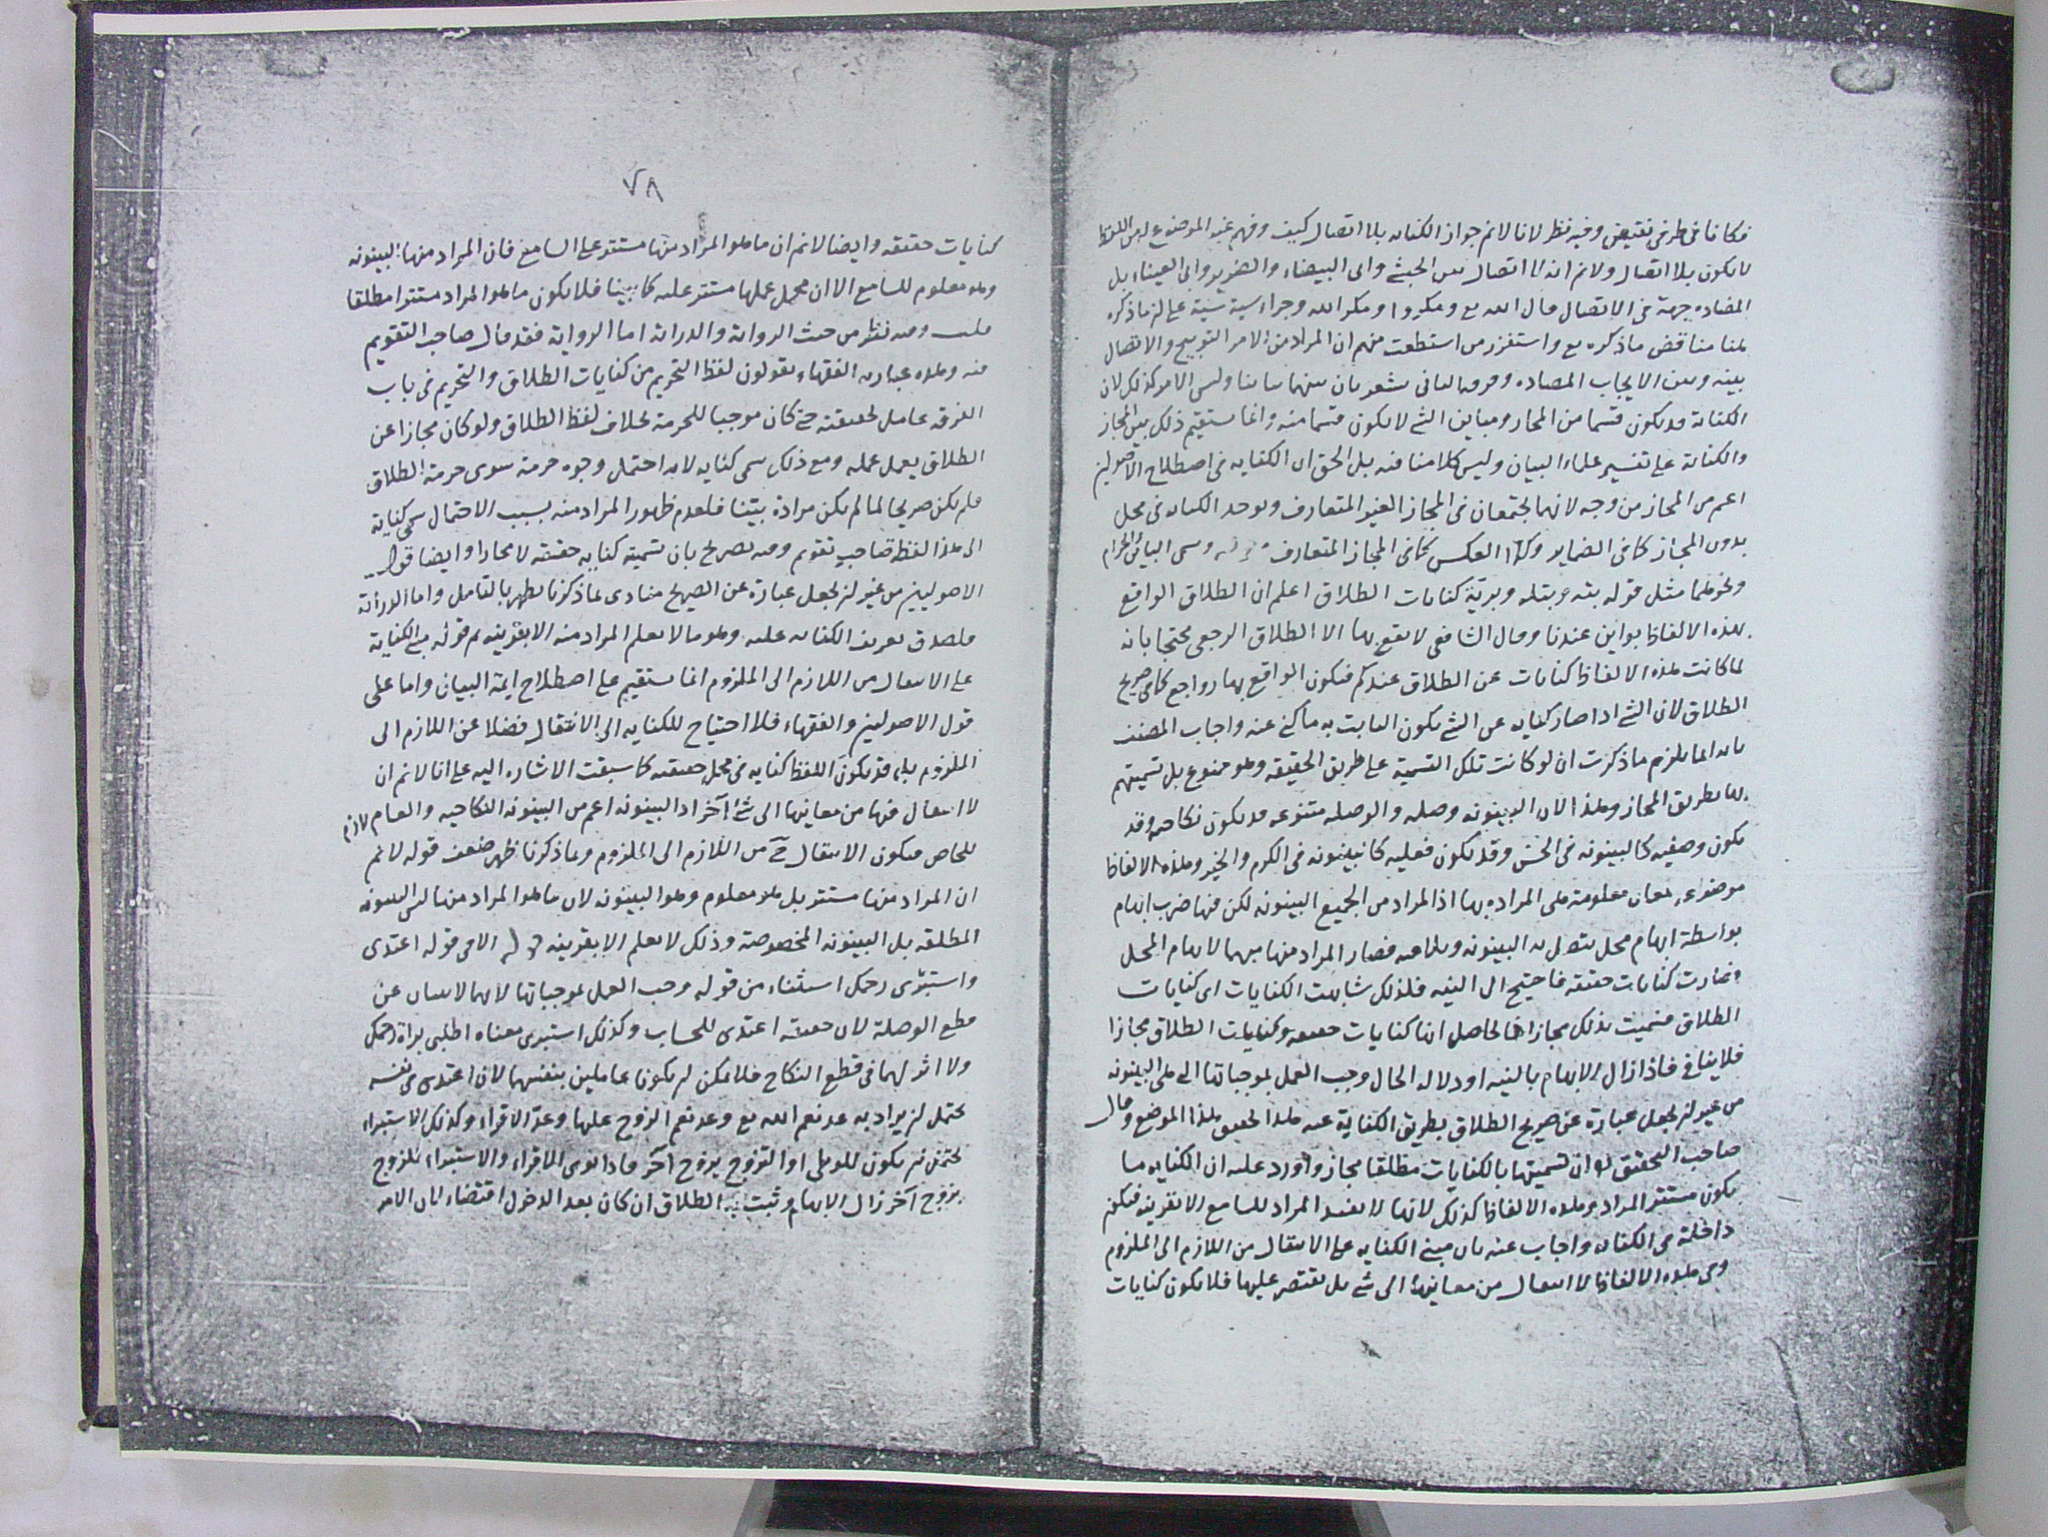 فكانا في طرفي نقيض وفيه نظر لانا لانم جواز الكناية بلا اتصال كيف وفهم غير الموضوع له من اللفظ
لا يكون بلا اتصال ولانم انه لا اتصال بين الحبشي وابى البيضاء والضرير وابى العيناء بل
المضاده جهة في الاتصال قال الله تع ومكروا ومكر الله وجزاء سيئة سيئة على ان ما ذكره
هنا مناقض ما ذكره مع واستفزز من استطعت منهم ان المراد من الامر التوبيخ والاتصال
بينه وبين الايجاب المضاده وفرقه الثاني يشعر بان بينهما تباينا وليس الامر كذلك لان
الكناية قد يكون قسما من المجاز ومباين الشئ لا يكون قسما منه وانما يستقيم ذلك بين المجاز
والكناية على تفسير علماء البيان وليس كلامنا فيه بل الحق ان الكناية في اصطلاح الاصوليين
اعم من المجاز من وجه لانهما يجتمعان في المجاز الغير المتعارف ويوجد الكناية في محل
بدون المجاز كما في الضماير وكذا العكس كما في المجاز المتعارف قوله وسمى البائن والحرام
ونحوهما مثل قوله بتة وبتلة وبرية كنايات الطلاق اعلم ان الطلاق الواقع
بهذه الالفاظ بواين عندنا وقال الشافعي لا يقع بها الا الطلاق الرجعي محتجا بانه
لما كانت هذه الالفاظ كنايات عن الطلاق عندكم فيكون الواقع بها رواجع كما في صريح
الطلاق لان الشئ اذا صار كناية عن الشئ يكون الثابت به ما كني عنه واجاب المصنف
بانه انما يلزم ما ذكرت ان لو كانت تلك التسمية على طريق الحقيقة وهو ممنوع بل تسميتهم
لها بطريق المجاز وهذا لان البينونة وصلة والوصلة متنوعة قد يكون نكاحية وقد
يكون وصفية كالبينونة في الحسن وقد يكون فعلية كالبينونة في الكرم والخير وهذه الالفاظ
موضوعة لمعان معلومة هي المراده بها اذ المراد من الجميع البينونة لكن فيها ضرب ابهام
بواسطة ابهام محل يتصل به البينونة ويلاقيه فصار المراد منها مبهما لابهام المحل
فصارت كنايات حقيقة فاحتيج الى النية فلذلك شابهت الكنايات اى كنايات
الطلاق فسميت بذلك مجازا فالحاصل انها كنايات حقيقة وكنايات الطلاق مجازا
فلا ينافي فاذا زال الابهام بالنية او دلالة الحال وجب العمل بموجباتها التي هي البينونة
من غير ان يجعل عبارة عن صريح الطلاق بطريق الكناية عنه هذا تحقيق هذا الموضع وقال
صاحب التحقيق لو ان تسميتها بالكنايات مطلقا مجاز واورد عليه ان الكناية ما
يكون مستتر المراد وهذه الالفاظ كذلك لانها لا تفيد المراد للسامع الا بقرينة فيكون
داخلة في الكناية واجاب عنه بان مبنى الكناية على الانتقال من اللازم الى الملزوم
وفى هذه الالفاظ لا انتقال من معانيها الى شئ بل تقتصر عليها فلا يكون كنايات
٧٨
كنايات حقيقة وايضا لانم ان ما هو المراد منها مستتر على السامع فان المراد منها البينونة
وهو معلوم للسامع الا ان محل عملها مستتر عليه كما بينا فلا يكون ما هو المراد مستترا مطلقا
قلت وفيه نظر من حيث الرواية والدراية اما الرواية فقد قال صاحب التقويم
فيه وهذه عبارته الفقهاء يقولون لفظ التحريم من كنايات الطلاق والتحريم في باب
الفرقة عامل بحقيقته حتى كان موجبا للحرمة بخلاف لفظ الطلاق ولو كان مجازا عن
الطلاق يعمل عمله ومع ذلك سمي كناية لانه احتمل وجوه حرمة سوى حرمة الطلاق
فلم يكن صريحا لما لم يكن مرادة بيّنا فلعدم ظهور المراد منه بسبب الاحتمال سمي كناية
الى هذا لفظ صاحب تقويم وفيه تصريح بان تسمية كنايه حقيقة لا مجازا وايضا قول
الاصوليين من غير ان يجعل عبارة عن الصريح منادى بما ذكرنا يظهر بالتأمل واما الدراية
فلصدق تعريف الكناية عليه وهو ما لا يعلم المراد منه الا بقرينة ثم قوله مبنى الكناية
على الانتقال من اللازم الى الملزوم انما يستقيم على اصطلاح ايمة البيان واما على
قول الاصوليين والفقهاء فلا احتياج للكناية الى الانتقال فضلا عن اللازم الى
الملزوم بل قد يكون اللفظ كناية في محل حقيقته كما سبقت الاشارة اليه على انا لانم ان
لا انتقال فيها من معانيها الى شئ آخر اذ البينونة اعم من البينونة النكاحية والعام لازم
للخاص فيكون الانتقال ح من اللازم الى الملزوم وبما ذكرنا ظهر ضعف قوله لانم
ان المراد منها مستتر بل هو معلوم وهو البينونة لان ما هو المراد منها ليس البينونة
المطلقة بل البينونة المخصوصة وذلك لا يعلم الا بقرينة قوله الا في قوله اعتدى
واستبرئى رحمك استثناء من قوله وجب العمل بموجباتها لانهما لا ينبيان عن
قطع الوصلة لان حقيقة اعتدى للحساب وكذلك استبرى معناه اطلبى براة رحمك
ولا اثر لهما في قطع النكاح فلا يمكن ان يكونا عاملين بنفسهما لان اعتدى في نفسه
يحتمل ان يراد به عد نعم الله تع وعد نعم الزوج عليها وعدّ الاقراء وكذلك الاستبراء
يحتمل ان يكون للوطئ او التزوج بزوج آخر فاذا نوى الاقراء والاستبراء للزوج
بزوج آخر زال الابهام وثبت به الطلاق ان كان بعد الدخول اقتضاء لان الامر